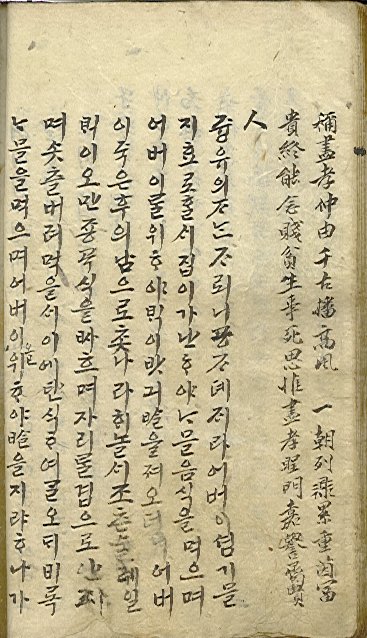 稱盡孝仲由千古播高風 一朝列鼎累重茵富
貴終能念賤貧生事死思惟盡孝聖門嘉譽屬賢
人
즁유의ᄌᆞᄂᆞᆫᄌᆞ뢰니공ᄌᆞ뎨ᄌᆡ라어버이셤기믈
지효로ᄒᆞᆯ서집이가난ᄒᆞ야ᄂᆞ믈음식을먹으며
어버이를위ᄒᆞ야ᄇᆡᆨ이밧긔ᄡᆞᆯ을져오더 어버
이죽은후의남으로촛나라히놀서조ᄎᆞᆫ술헤일
ᄇᆡᆨ이오만죵곡식을ᄡᅡ흐며자리를겹으로
며솟츨버려먹을서이에탄식ᄒᆞ여ᄀᆞᆯ오ᄃᆡ비록
ᄂᆞ믈을먹으며어버이을위ᄒᆞ야ᄡᆞᆯ을지랴ᄒᆞ나가